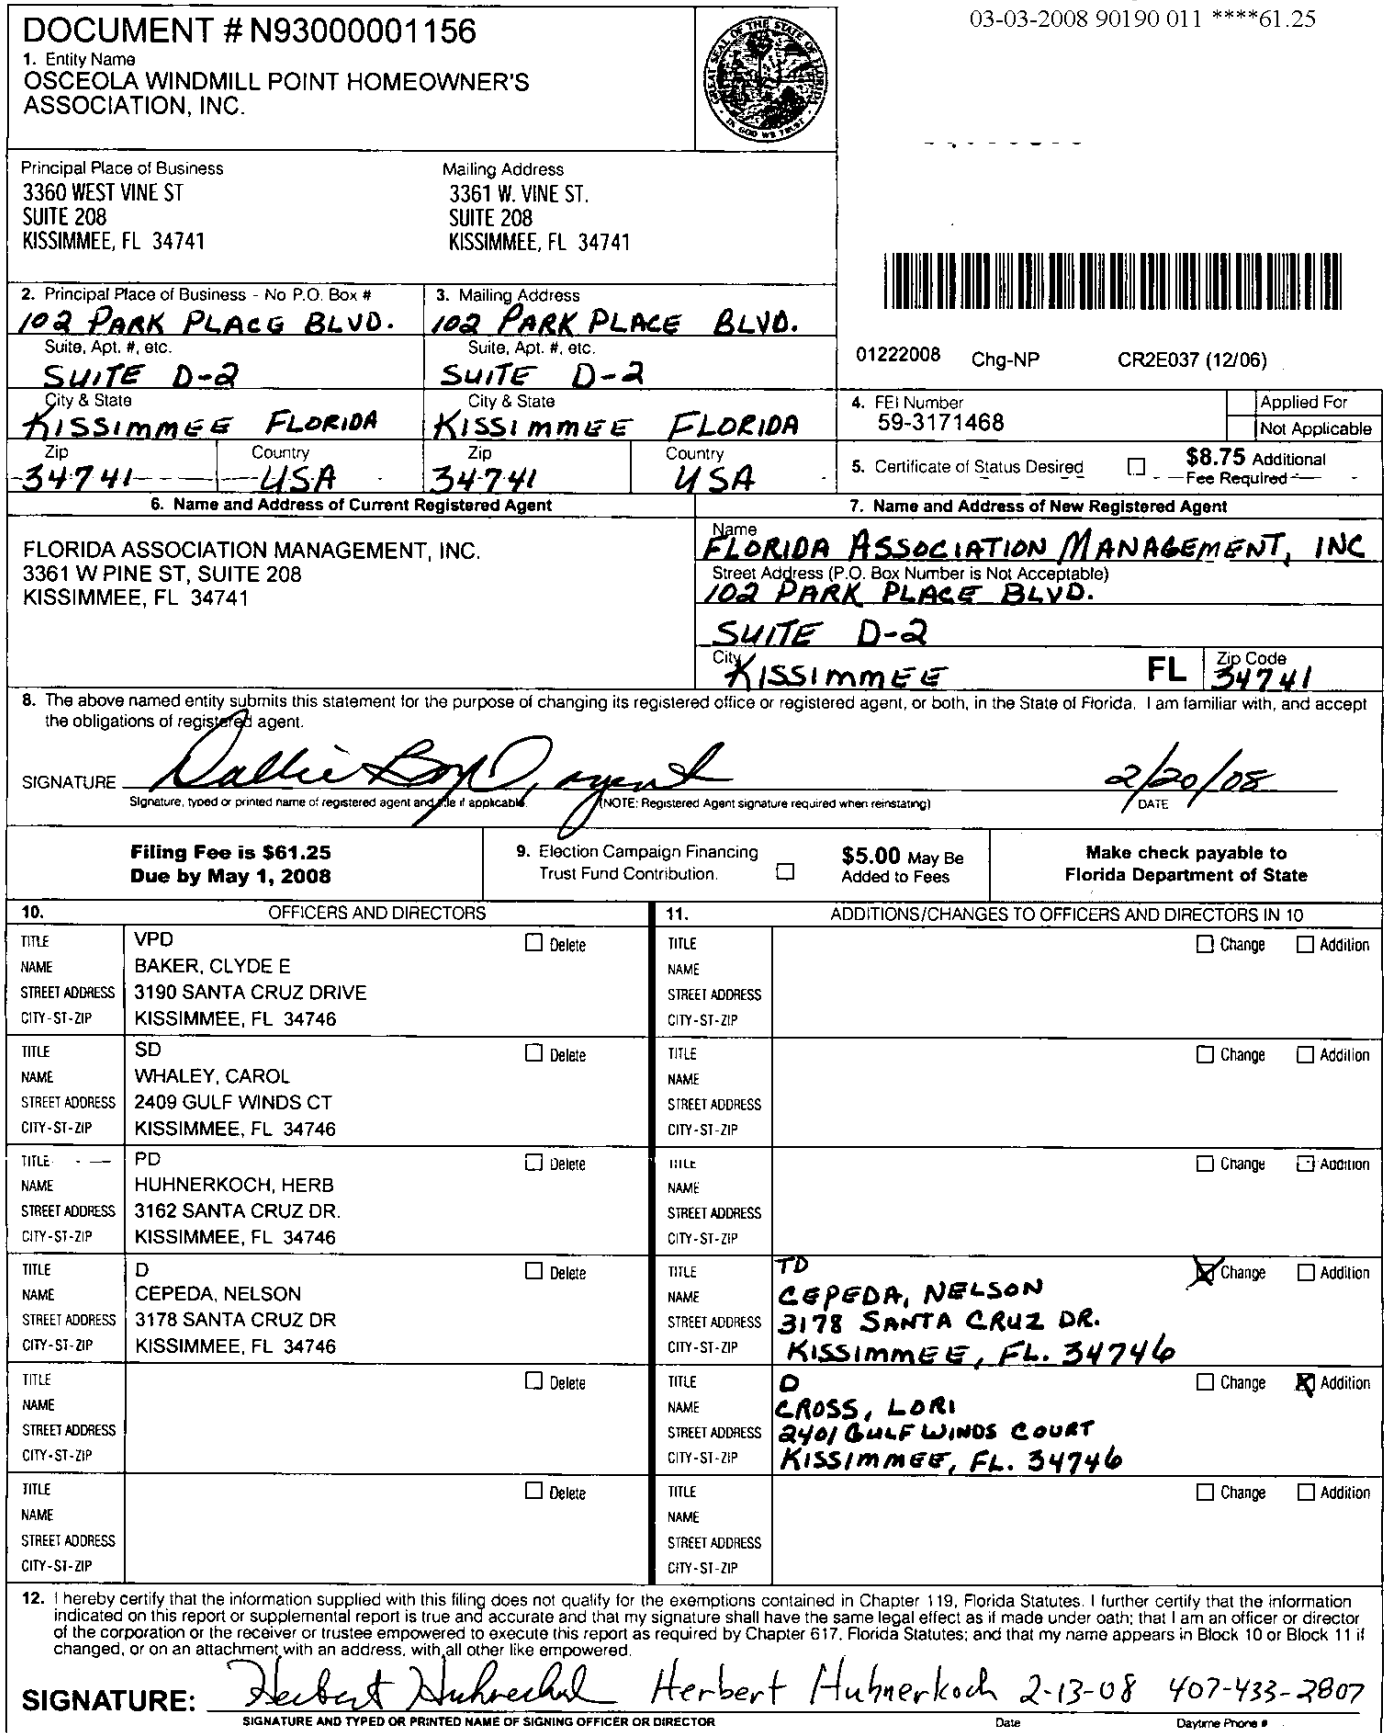 03-03-2008 90190 011 ****61.25
DOCUMENT # N93000001156
1. Entity Name
OSCEOLA WINDMILL POINT HOMEOWNER'S
ASSOCIATION, INC.
GREAT SEAL OF THE STATE OF FLORIDA
IN GOD WE TRUST
Principal Place of Business
3360 WEST VINE ST
SUITE 208
KISSIMMEE, FL 34741
Mailing Address
3361 W. VINE ST.
SUITE 208
KISSIMMEE, FL 34741
2. Principal Place of Business - No P.O. Box #
102 PARK PLACE BLVD.
Suite, Apt. #, etc.
SUITE D-2
City & State
KISSIMMEE FLORIDA
Zip Country
34741 USA
3. Mailing Address
102 PARK PLACE BLVD.
Suite, Apt. #, etc.
SUITE D-2
City & State
KISSIMMEE FLORIDA
Zip Country
34741 USA
01222008 Chg-NP CR2E037 (12/06)
4. FEI Number
59-3171468
Applied For
Not Applicable
5. Certificate of Status Desired
$8.75 Additional
Fee Required
6. Name and Address of Current Registered Agent
FLORIDA ASSOCIATION MANAGEMENT, INC.
3361 W PINE ST, SUITE 208
KISSIMMEE, FL 34741
7. Name and Address of New Registered Agent
Name
FLORIDA ASSOCIATION MANAGEMENT, INC
Street Address (P.O. Box Number is Not Acceptable)
102 PARK PLACE BLVD.
SUITE D-2
City
KISSIMMEE
FL
Zip Code
34741
8. The above named entity submits this statement for the purpose of changing its registered office or registered agent, or both, in the State of Florida. I am familiar with, and accept
the obligations of registered agent.
SIGNATURE Dallie Boyd, agent 2/20/08
Signature, typed or printed name of registered agent and title if applicable. (NOTE: Registered Agent signature required when reinstating) DATE
Filing Fee is $61.25
Due by May 1, 2008
9. Election Campaign Financing
Trust Fund Contribution.
$5.00 May Be
Added to Fees
Make check payable to
Florida Department of State
10. OFFICERS AND DIRECTORS
TITLE VPD Delete
NAME BAKER, CLYDE E
STREET ADDRESS 3190 SANTA CRUZ DRIVE
CITY-ST-ZIP KISSIMMEE, FL 34746
TITLE SD Delete
NAME WHALEY, CAROL
STREET ADDRESS 2409 GULF WINDS CT
CITY-ST-ZIP KISSIMMEE, FL 34746
TITLE PD Delete
NAME HUHNERKOCH, HERB
STREET ADDRESS 3162 SANTA CRUZ DR.
CITY-ST-ZIP KISSIMMEE, FL 34746
TITLE D Delete
NAME CEPEDA, NELSON
STREET ADDRESS 3178 SANTA CRUZ DR
CITY-ST-ZIP KISSIMMEE, FL 34746
TITLE Delete
NAME
STREET ADDRESS
CITY-ST-ZIP
TITLE Delete
NAME
STREET ADDRESS
CITY-ST-ZIP
11. ADDITIONS/CHANGES TO OFFICERS AND DIRECTORS IN 10
TITLE Change Addition
NAME
STREET ADDRESS
CITY-ST-ZIP
TITLE Change Addition
NAME
STREET ADDRESS
CITY-ST-ZIP
TITLE Change Addition
NAME
STREET ADDRESS
CITY-ST-ZIP
TITLE TD Change Addition
NAME CEPEDA, NELSON
STREET ADDRESS 3178 SANTA CRUZ DR.
CITY-ST-ZIP KISSIMMEE, FL. 34746
TITLE D Change Addition
NAME CROSS, LORI
STREET ADDRESS 2401 GULF WINDS COURT
CITY-ST-ZIP KISSIMMEE, FL. 34746
TITLE Change Addition
NAME
STREET ADDRESS
CITY-ST-ZIP
12. I hereby certify that the information supplied with this filing does not qualify for the exemptions contained in Chapter 119, Florida Statutes. I further certify that the information
indicated on this report or supplemental report is true and accurate and that my signature shall have the same legal effect as if made under oath; that I am an officer or director
of the corporation or the receiver or trustee empowered to execute this report as required by Chapter 617, Florida Statutes; and that my name appears in Block 10 or Block 11 if
changed, or on an attachment with an address, with all other like empowered.
SIGNATURE: Herbert Huhnerkoch Herbert Huhnerkoch 2-13-08 407-433-2807
SIGNATURE AND TYPED OR PRINTED NAME OF SIGNING OFFICER OR DIRECTOR Date Daytime Phone #